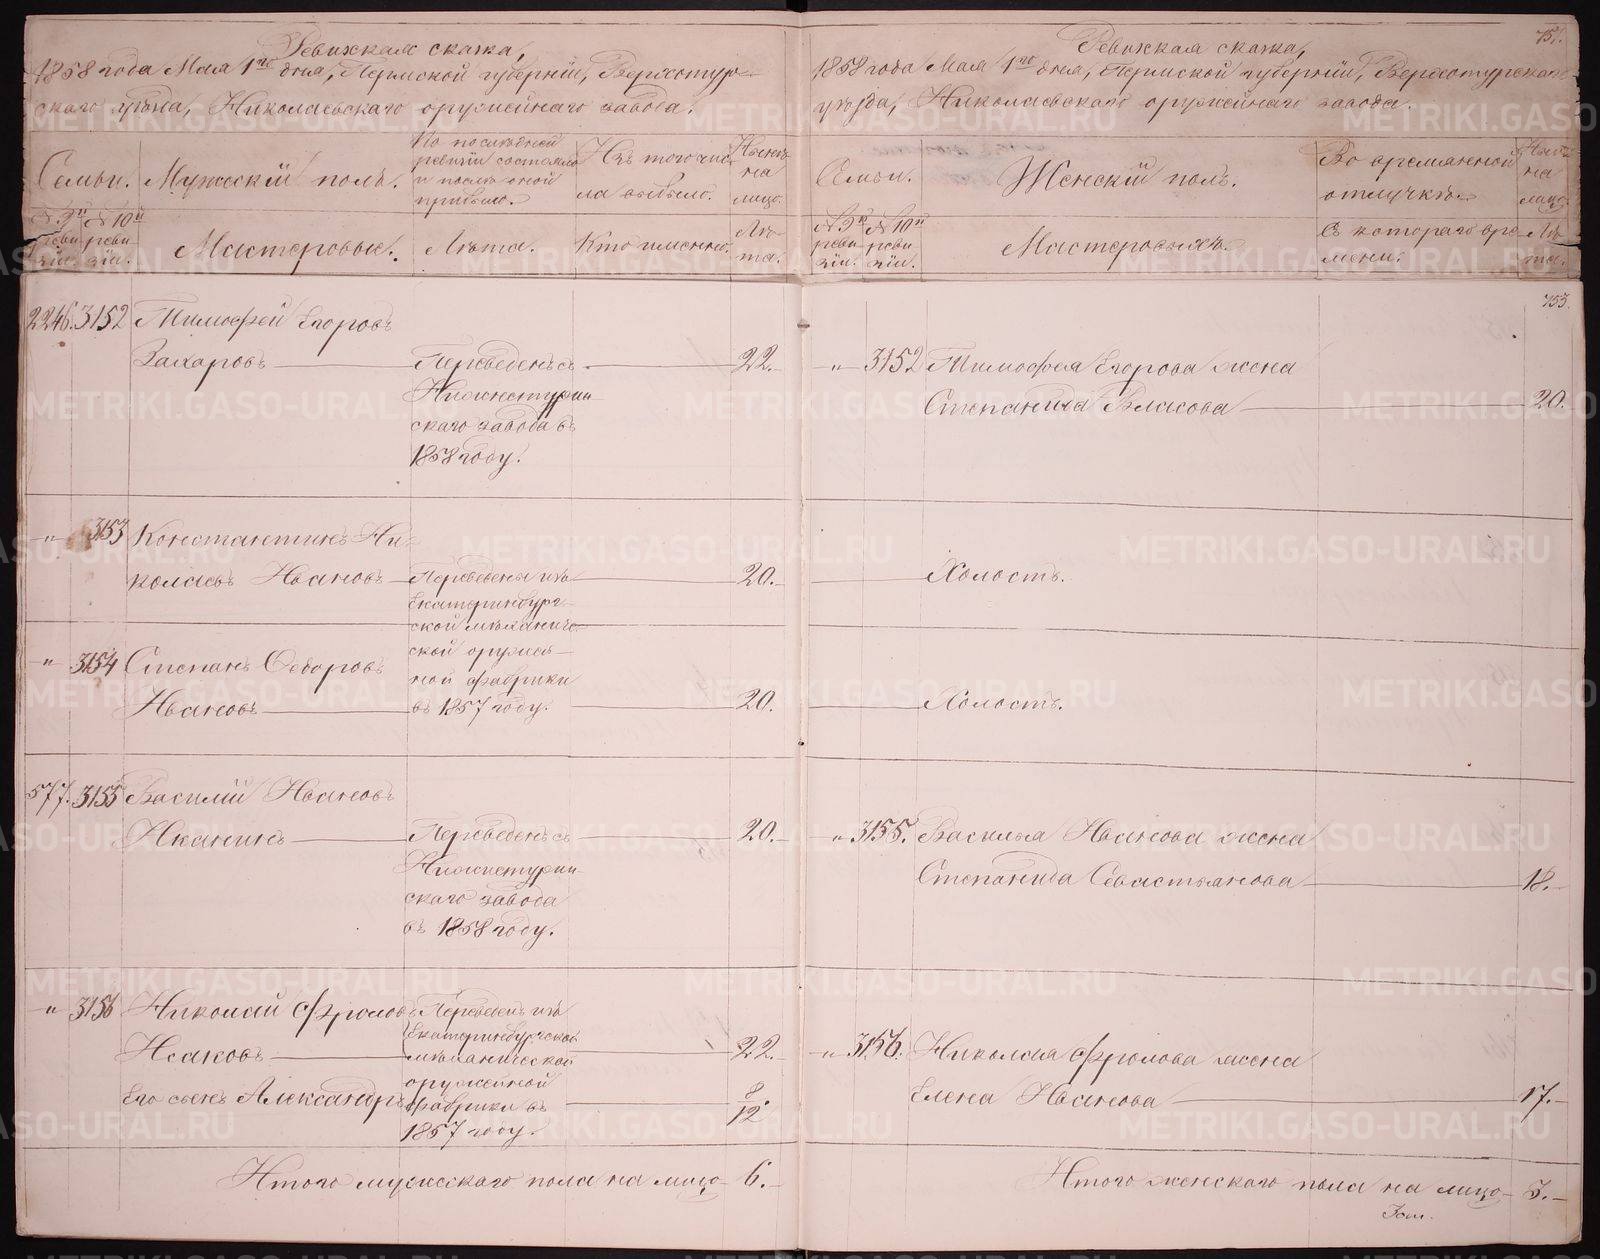 Ревизская сказка,
1858 года Мая 1го дня, Пермской губернии, Верхотур-
скаго уѣзда, Николаевскаго оружейнаго завода.
Семьи.
Мужескій полъ.
По послѣдней
ревизіи состояло
и послѣ оной
прибыло.
Изъ того чис-
ла выбыло.
на
лицо.
№ 9й
реви
зіи.
№ 10й
реви
зіи.
Мастеровые.
Лѣта.
Кто именно.
Лѣ-
та.
2246. 3152 Тимофей Егоровъ
Захаровъ
Переведенъ съ
22.
Нижнетурин-
скаго завода въ
1858 году.
" 3153 Константинъ Ни-
колаевъ Ивановъ
Переведены изъ
20.
Екатеринбург-
ской механиче-
ской оружей-
ной фабрики
въ 1857 году.
" 3154 Степанъ Федоровъ
Ивановъ
20.
577. 3155 Василій Ивановъ
Иканинъ
Переведенъ съ
20.
Нижнетурин-
скаго завода
въ 1858 году.
" 3156 Николай Фроловъ
Исаковъ
Переведенъ изъ
Екатеринбургской
механической
оружейной
фабрики въ
1857 году.
22.
Его сынъ Александръ
8/12.
Итого мужескаго пола на лицо 6.
751.
Ревизская сказка,
1858 года Мая 1го дня, Пермской губерніи, Верхотурскаго
уѣзда, Николаевскаго оружейнаго завода.
Семьи.
Женскій полъ.
Во временной
отлучкѣ.
на
лицо.
№ 9й
реви
зіи.
№ 10й
реви
зіи.
Мастеровыхъ.
Съ котораго вре-
мени.
Лѣ-
та.
753.
" 3152 Тимофея Егорова жена
Степанида Власова
20.
Холостъ.
Холостъ.
" 3155. Василья Иванова жена
Степанида Севастьянова
18.
" 3156. Николая Фролова жена
Елена Иванова
17.
Итого женскаго пола на лицо 3.
METRIKI.GASO-URAL.RU